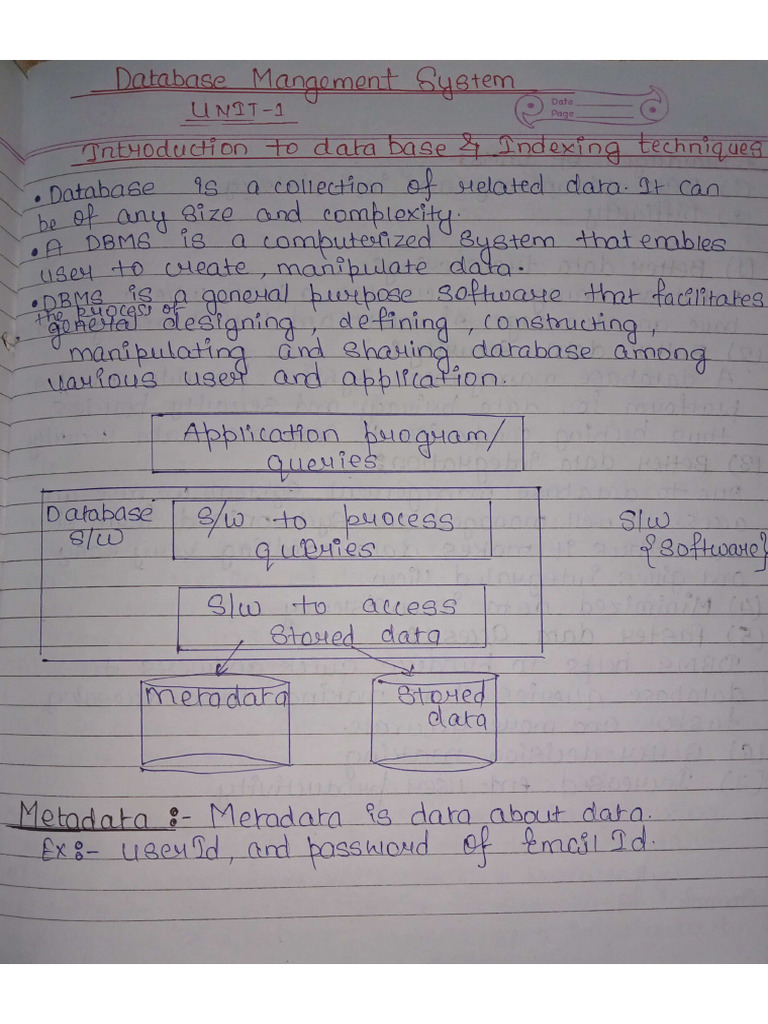 Database Mangement System
UNIT-1
Date
Page
Introduction to data base & Indexing techniques
• Database is a collection of related data. It can
be of any size and complexity.
• A DBMS is a computerized system that enables
user to create, manipulate data.
• DBMS is a general purpose software that facilitates
the process of
general designing, defining, constructing,
manipulating and sharing database among
various user and application.
Application program/
queries
Database
S/W
S/w to process
queries
S/W
{Software}
S/w to access
Stored data
Metadata
Stored
data
Metadata :- Metadata is data about data.
Ex:- UserId, and password of Email Id.